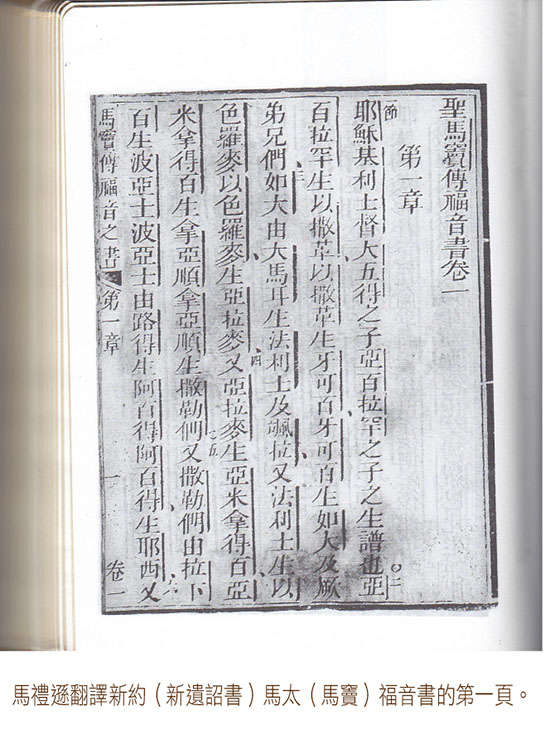 聖馬竇傳福音書卷一
第一章
節耶穌基利士督大五得之子亞百拉罕之子之生譜也○二亞
百拉罕生以撒革以撒革生牙可百牙可百生如大及厥
弟兄們三如大由大馬耳生法利士及颯拉又法利士生以
色羅麥以色羅麥生亞拉麥四又亞拉麥生亞米拿得百亞
米拿得百生拿亞順拿亞順生撒勒們五又撒勒們由拉下
百生波亞士波亞士由路得生阿百得阿百得生耶西六又
馬竇傳福音之書 第一章 一 卷一
馬禮遜翻譯新約（新遺詔書）馬太（馬竇）福音書的第一頁。